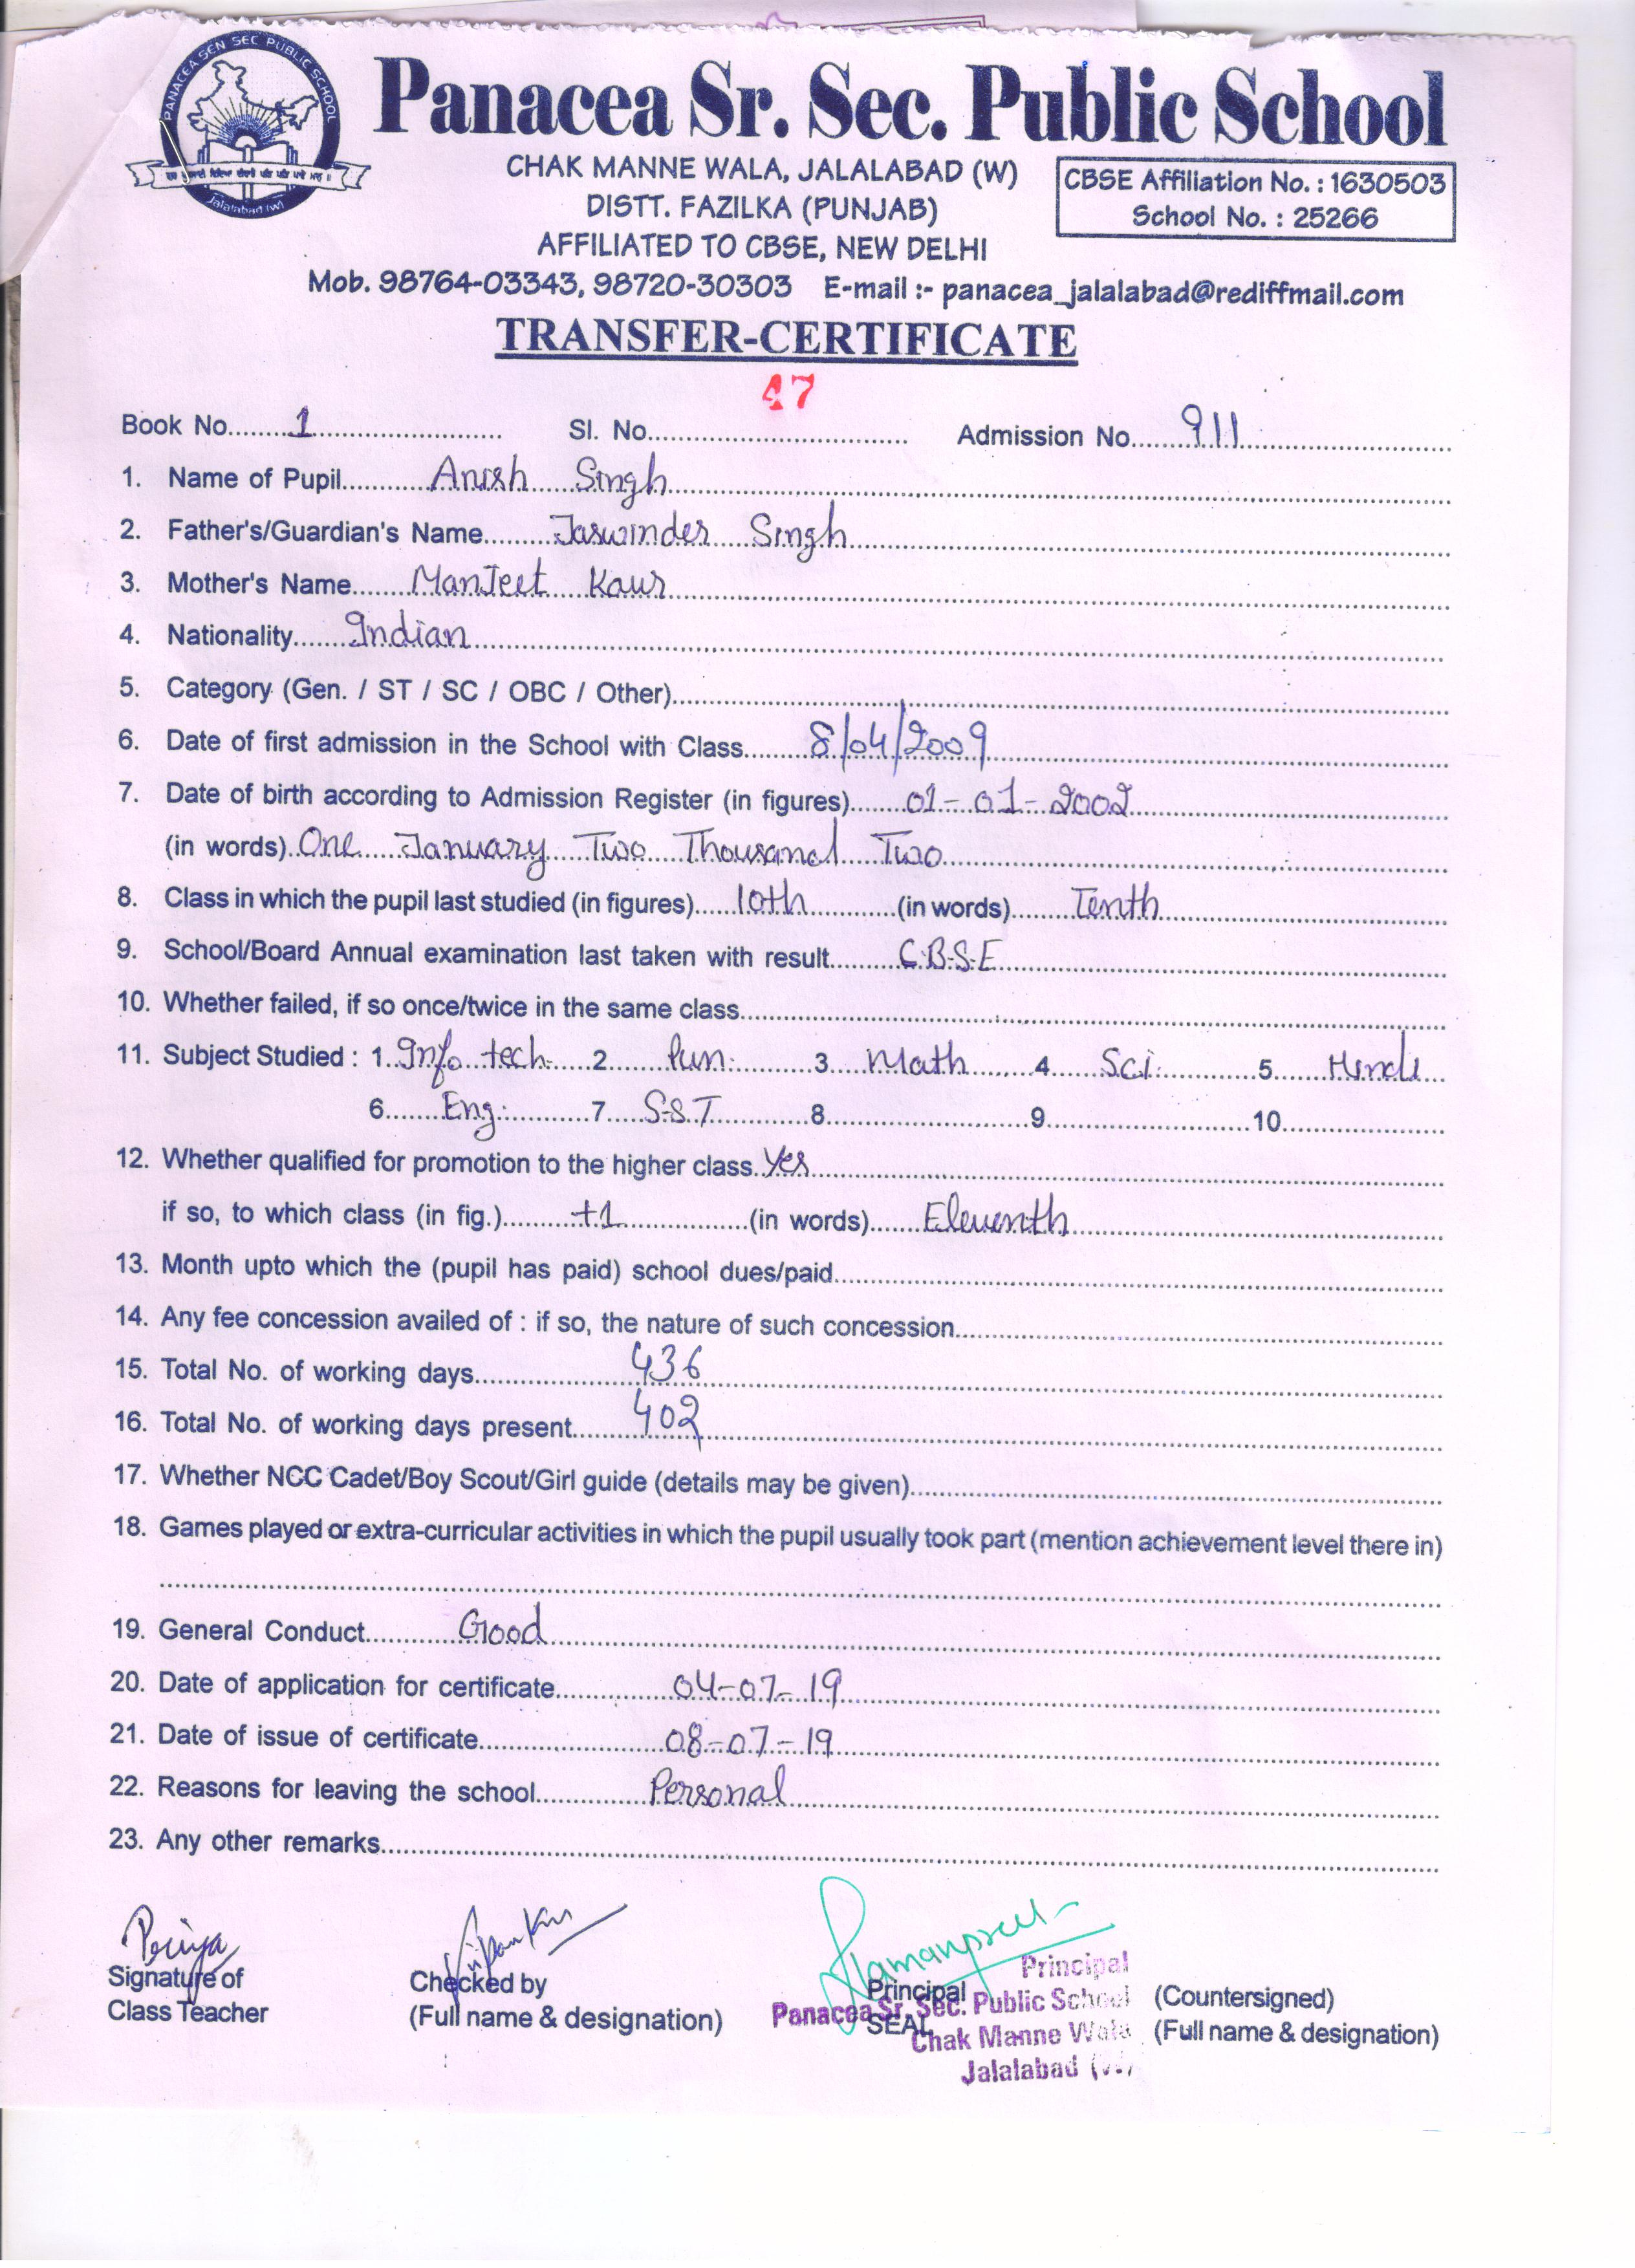 PANACEA SEN SEC PUBLIC SCHOOL
Jalalabad (w)
Panacea Sr. Sec. Public School
CHAK MANNE WALA, JALALABAD (W)
DISTT. FAZILKA (PUNJAB)
AFFILIATED TO CBSE, NEW DELHI
CBSE Affiliation No. : 1630503
School No. : 25266
Mob. 98764-03343, 98720-30303 E-mail :- panacea_jalalabad@rediffmail.com
TRANSFER-CERTIFICATE
47
Book No. 1 Sl. No. Admission No. 911
1. Name of Pupil Anish Singh
2. Father's/Guardian's Name Jaswinder Singh
3. Mother's Name ManJeet Kaur
4. Nationality Indian
5. Category (Gen. / ST / SC / OBC / Other)
6. Date of first admission in the School with Class 8/04/2009
7. Date of birth according to Admission Register (in figures) 01-01-2002
(in words) One January Two Thousand Two
8. Class in which the pupil last studied (in figures) 10th (in words) Tenth
9. School/Board Annual examination last taken with result C.B.S.E
10. Whether failed, if so once/twice in the same class
11. Subject Studied : 1 Info tech. 2 Pun. 3 Math 4 Sci. 5 Hindi
6 Eng. 7 S.S.T 8 9 10
12. Whether qualified for promotion to the higher class Yes
if so, to which class (in fig.) +1 (in words) Eleventh
13. Month upto which the (pupil has paid) school dues/paid
14. Any fee concession availed of : if so, the nature of such concession
15. Total No. of working days 436
16. Total No. of working days present 402
17. Whether NCC Cadet/Boy Scout/Girl guide (details may be given)
18. Games played or extra-curricular activities in which the pupil usually took part (mention achievement level there in)
19. General Conduct Good
20. Date of application for certificate 04-07-19
21. Date of issue of certificate 08-07-19
22. Reasons for leaving the school Personal
23. Any other remarks
Priya
Ramanpreet
Signature of
Class Teacher
Checked by
(Full name & designation)
Principal
SEAL
Principal
Panacea Sr. Sec. Public School
Chak Manne Wala
Jalalabad
(Countersigned)
(Full name & designation)